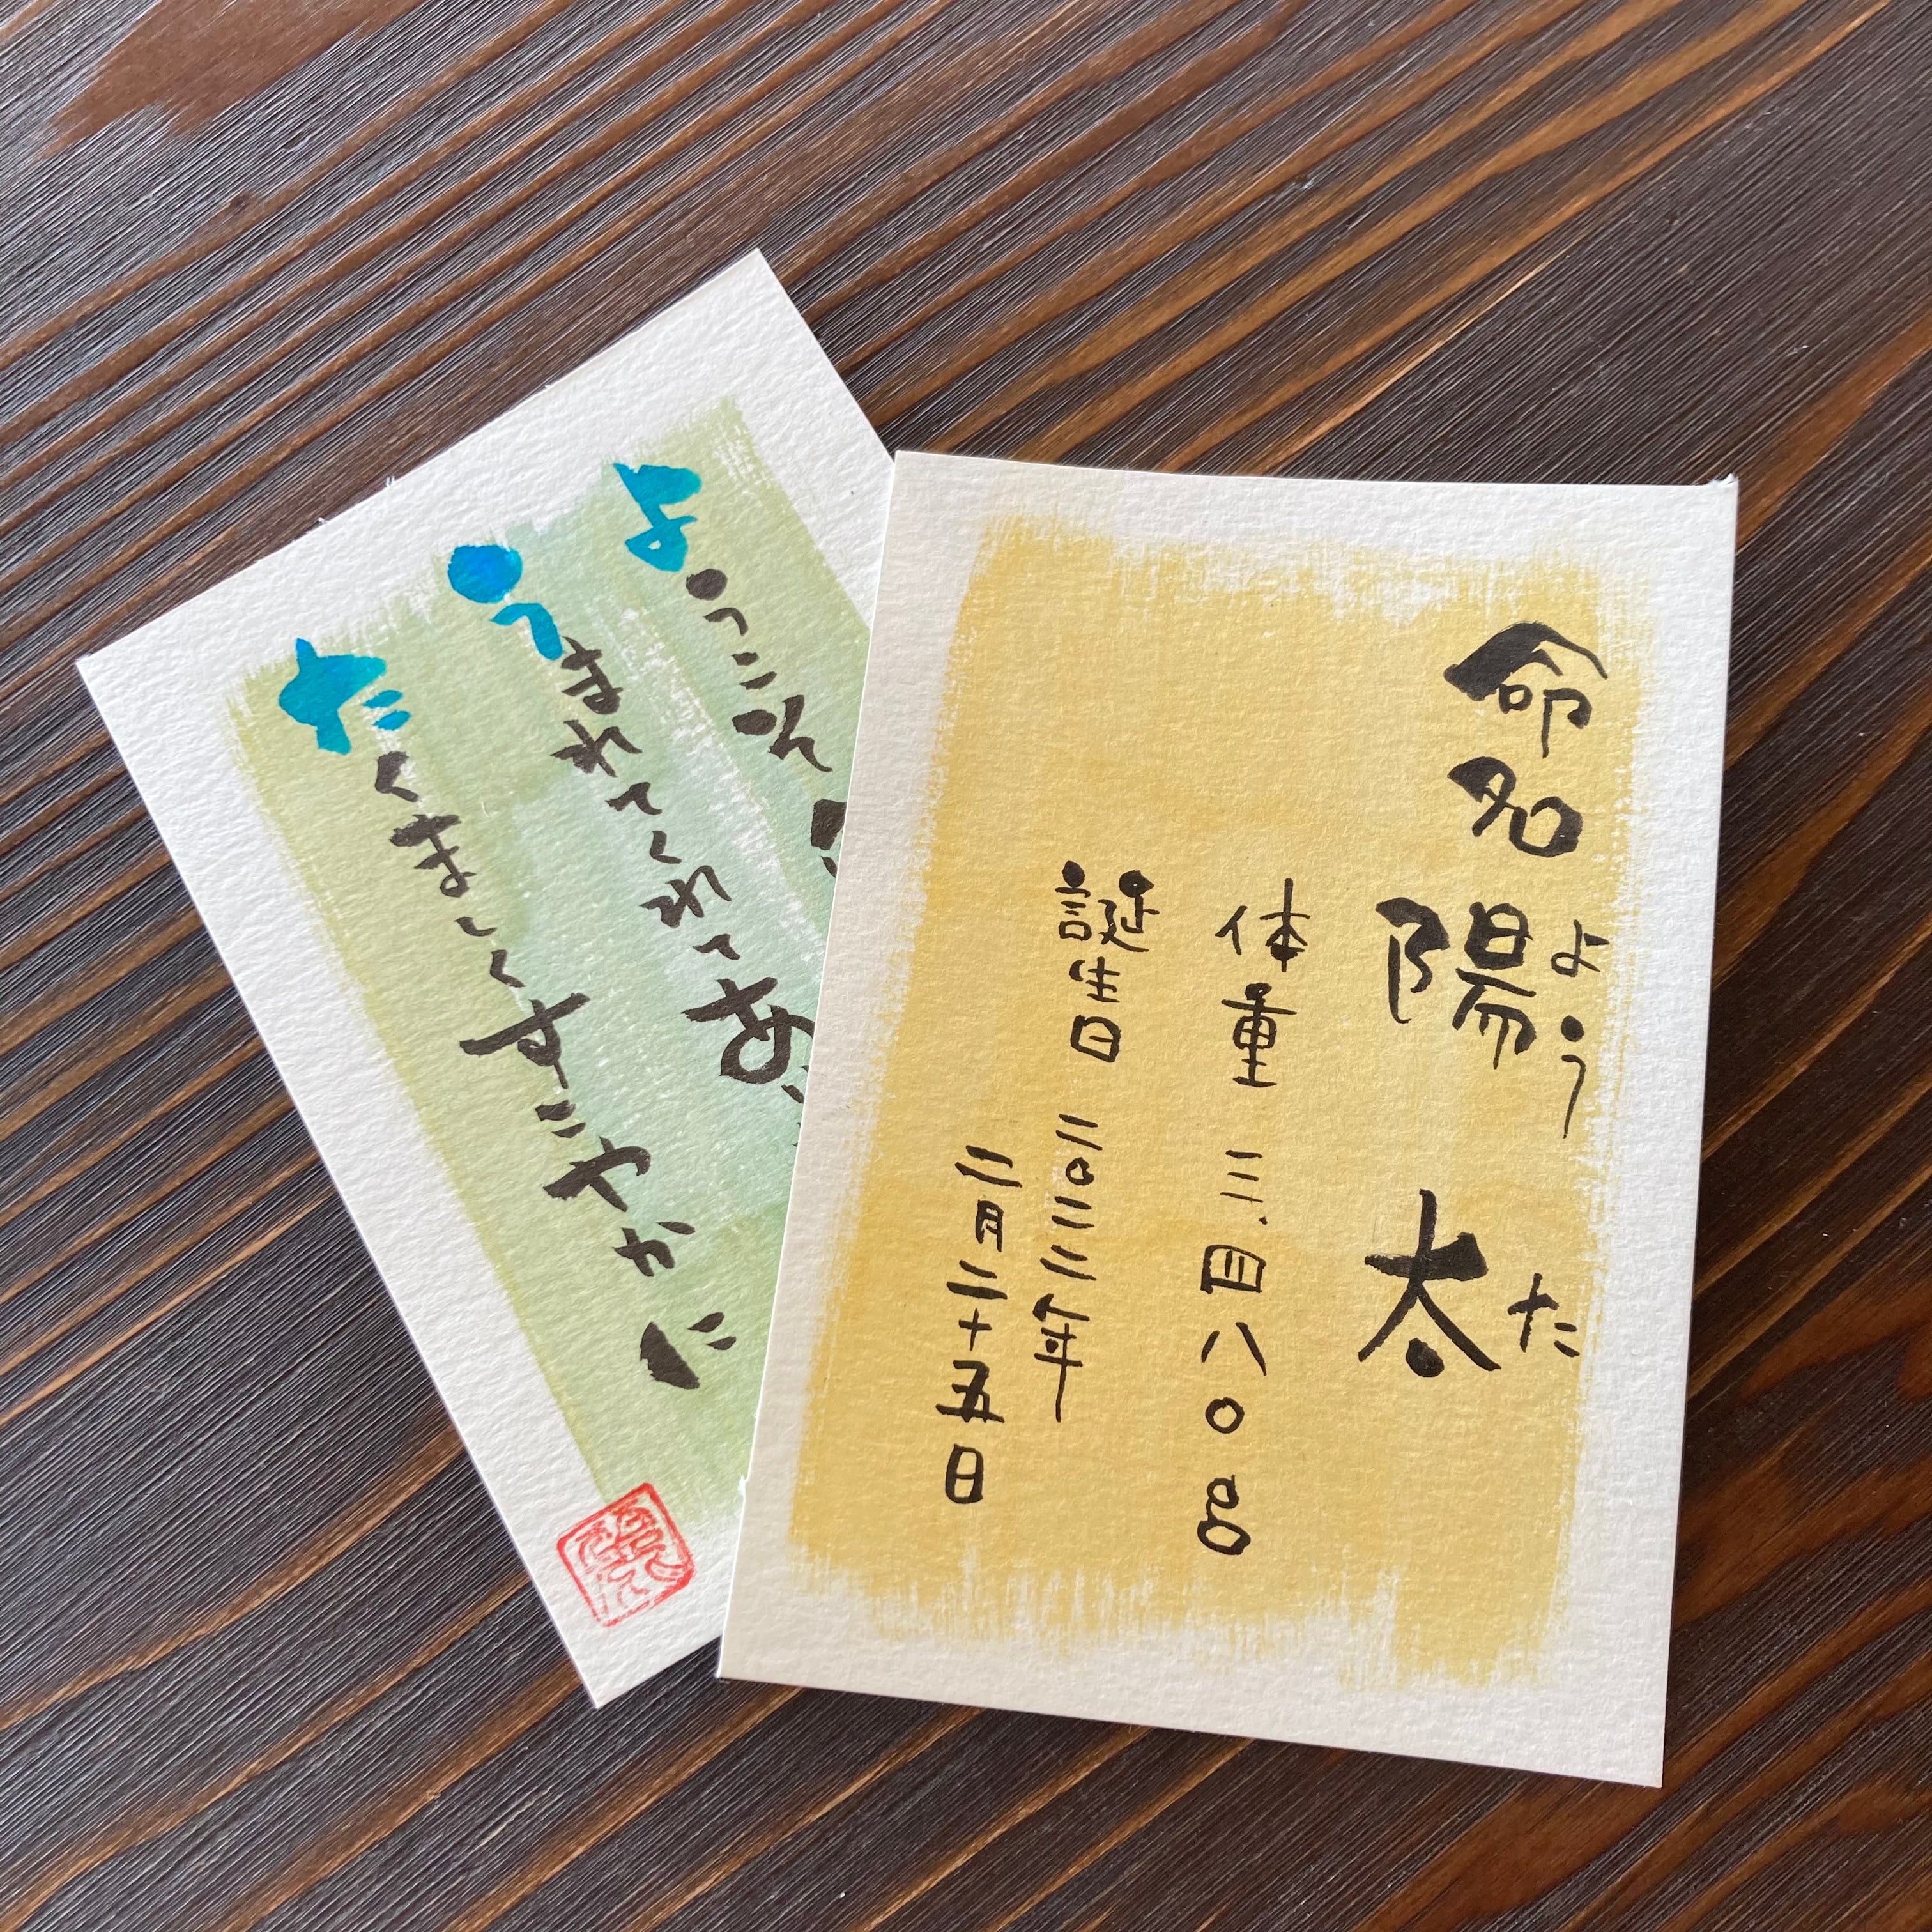 命名 陽太
よう た
体重 三、四八〇g
誕生日 二〇二二年
二月二十五日
ようこそ
うまれてくれてあ
たくましくすこやかに